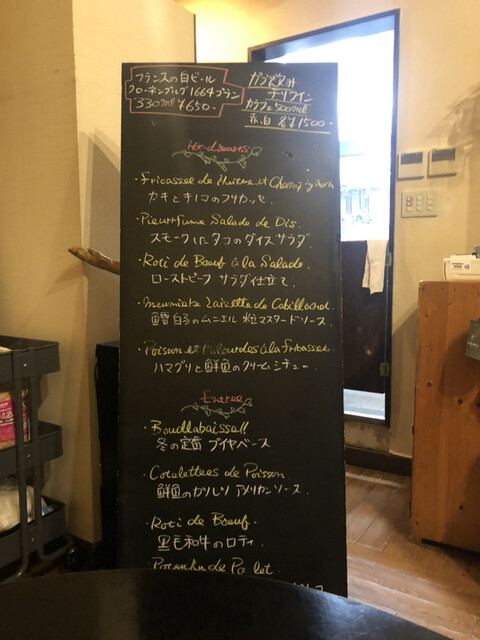 フランスの白ビール
クローネンブルグ1664ブラン
330ml ¥650-
ガブ飲み
チリワイン
カラフェ500ml
赤・白 各¥1500-
Hor-d'œuvres
・Fricassee de Huitre et Champignon
カキとキノコのフリカッセ
・Pieuvrfume Salade de Dis.
スモークしたタコのダイスサラダ
・Roti de Bœuf à la Salade.
ローストビーフ サラダ仕立て.
・Meuniere Laizette de Cabillaud.
鱈白子のムニエル 粒マスタードソース.
・Poisson et Palourdes à la fricassee
ハマグリと鮮魚のクリームシチュー.
Entree
・Bouillabaissell
冬の定番 ブイヤベース
・Cotelettees de Poisson.
鮮魚のカツレツ アメリカンソース.
・Roti de Bœuf.
黒毛和牛のロティ.